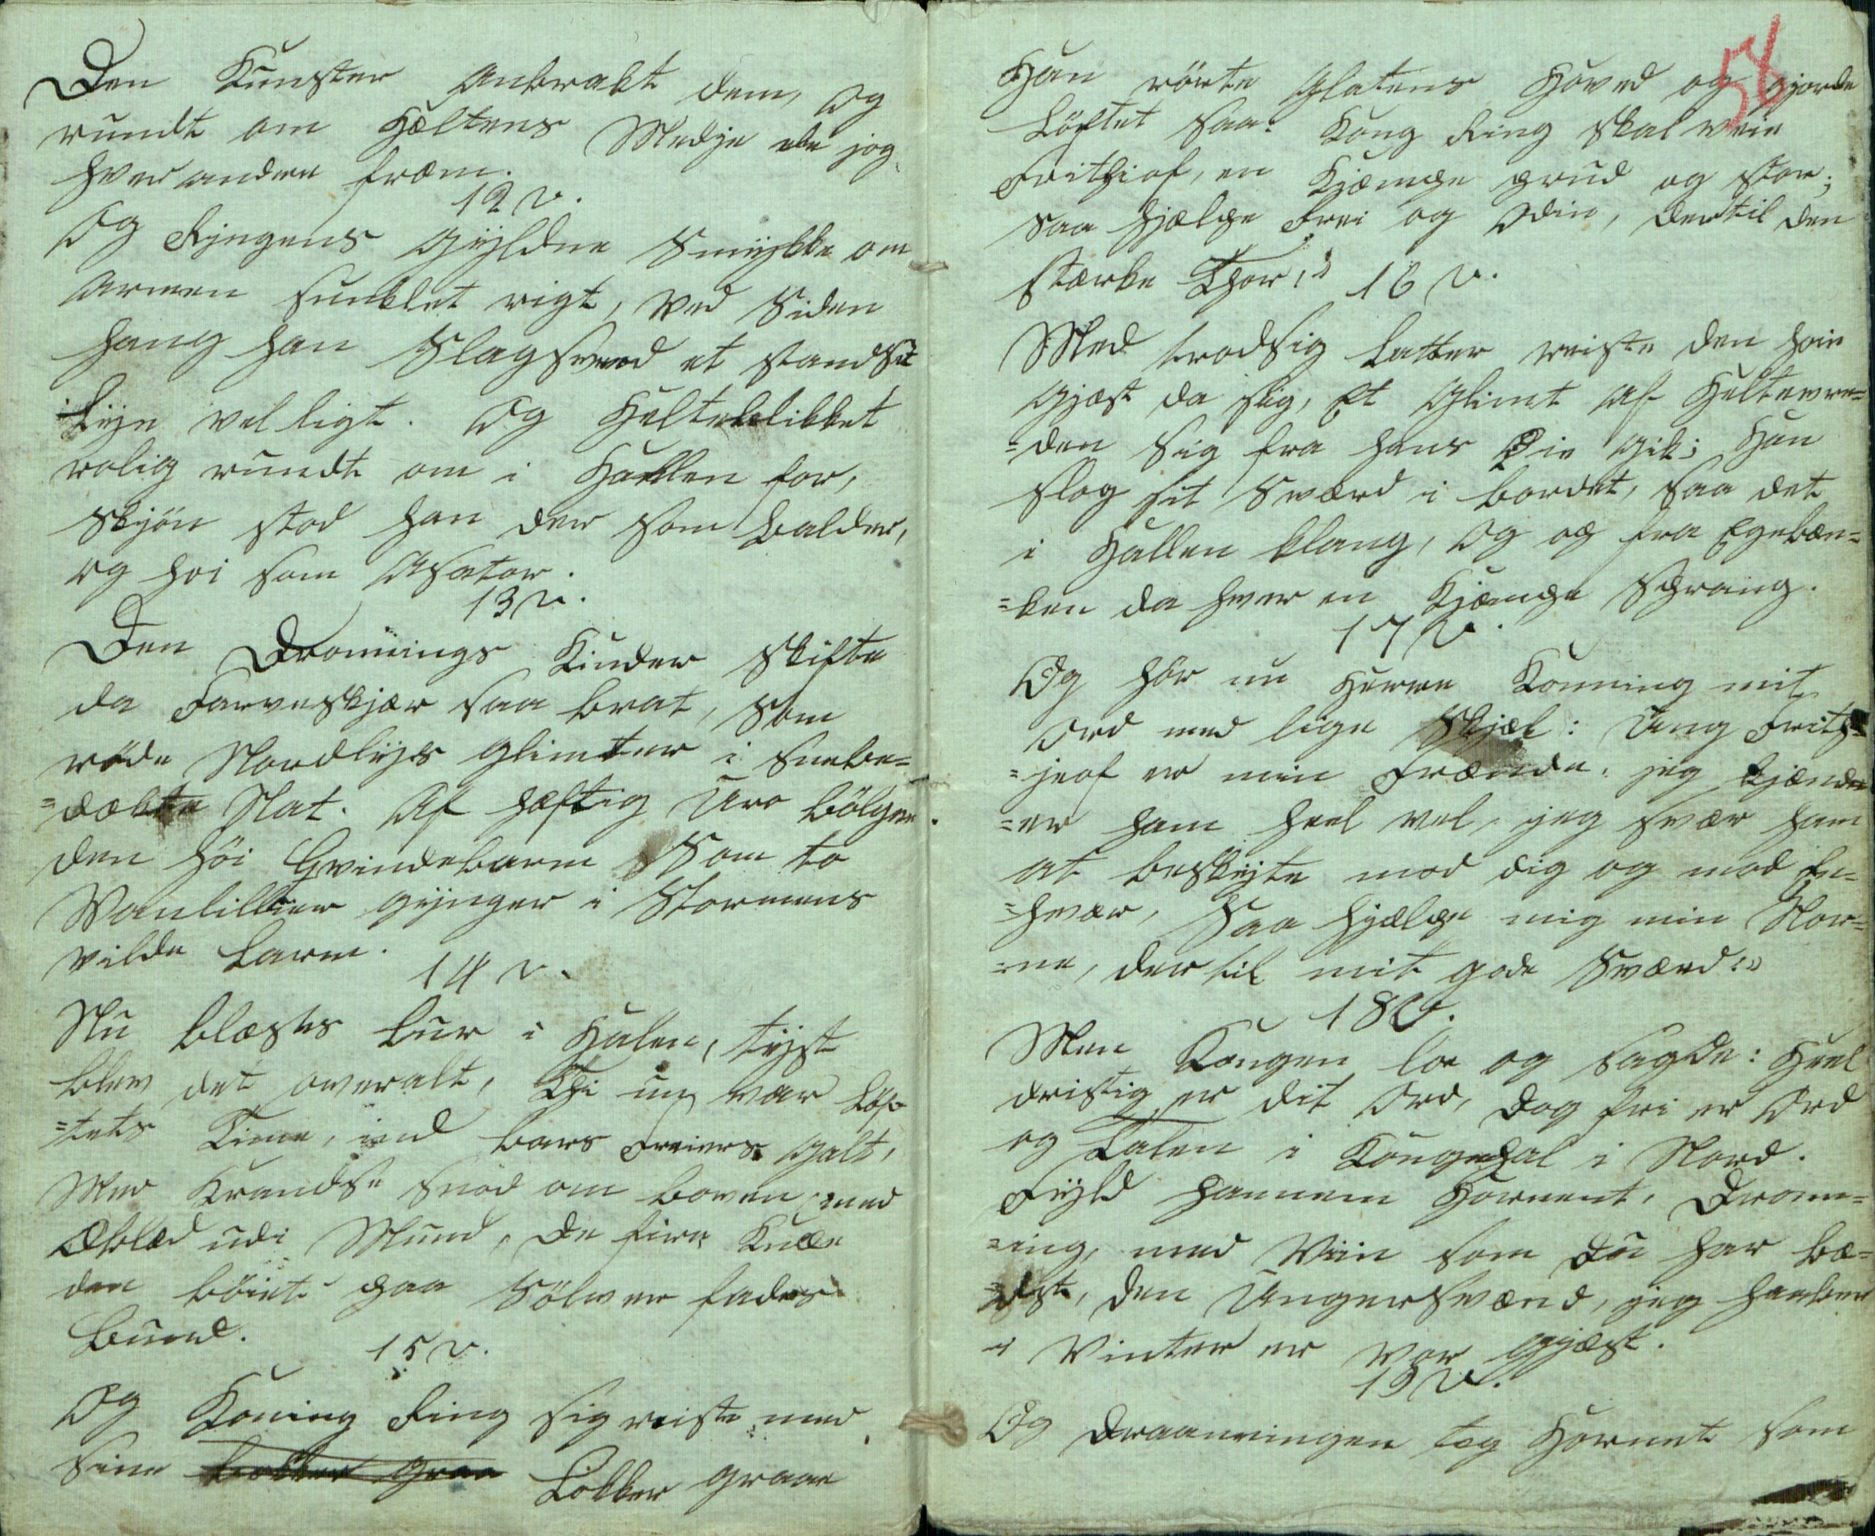 Den Kunster anbrakt dem, og
rundt om Hæltens Medje de jog
hverandre fræm.
12 v.
Og Ryngens Gyldne Smykke om
Armen funklet rigt, ved Siden
hang han Slagsverd et standset
Lyn vel ligt. Og Helteblikket
rolig rundt om i Hallen for,
Skjøn stod han der som Balder,
og høi som Asator.
13 v.
Den Dronnings Kinder skifte
da Farveskjær saa brat, som
røde Nordlys glimter i Snebe=
=dækte Nat. Af hæftig Uro bølger
den høi Qvindebarm Som to
Vanlillier gynger i Stormens
vilde Larm.
14 v.
Nu blæstes Lur i Halen, tyst
blev det overalt, Thi nu var Løf
=tets Time, ind bars Freiers Galt,
Med Krandse snod om boven med
Æblæd udi Mund, De fire Knæe
den bøiet paa Sølwer fades
bund.
15 v.
Og Koning Ring sig reiste med
sine Lokker graa Lokker graae
58
Han rørte Glatens Hoved og gjorde
Løftet saa: Kong Ring skal veie
Frithiof, en Kjæmpe prud og stor;
saa hjælpe Frei og Odin, dertil den
stærke Thor!"
16 v.
Med trodsig Latter reiste den høie
Gjæst da sig, Et Glimt af Heltevre=
=den Sig fra hans Øie gik; Han
slog sit Sværd i bordet, saa det
i Hallen klang, Og op fra Egebæn=
=ken da hver en Kjæmpe sprang.
17 v.
Og hør nu Herre Konning mit
Ord med lige Skjæl: Ung Frith=
=jeof er min Frænde, jeg kjænde
=er ham heel vel, jeg svær ham
at beskytte mod dig og mod En=
=hvær, Saa hjælpe mig min Nor=
=ne, dertil mit gode Sværd:"
18 v.
Men Kongen lo og sagde: Heel
dristig er dit Ord, dog fri er Ord
og Talen i Kongehal i Nord.
Fyld hannem Hornent, Dronn=
=ing, med Viin som Du har bæ=
=dst, den Ungersvænd, jeg haaber
i Vinter er vor Gjæst.
19 v.
Og Draanningen tog Hornet som